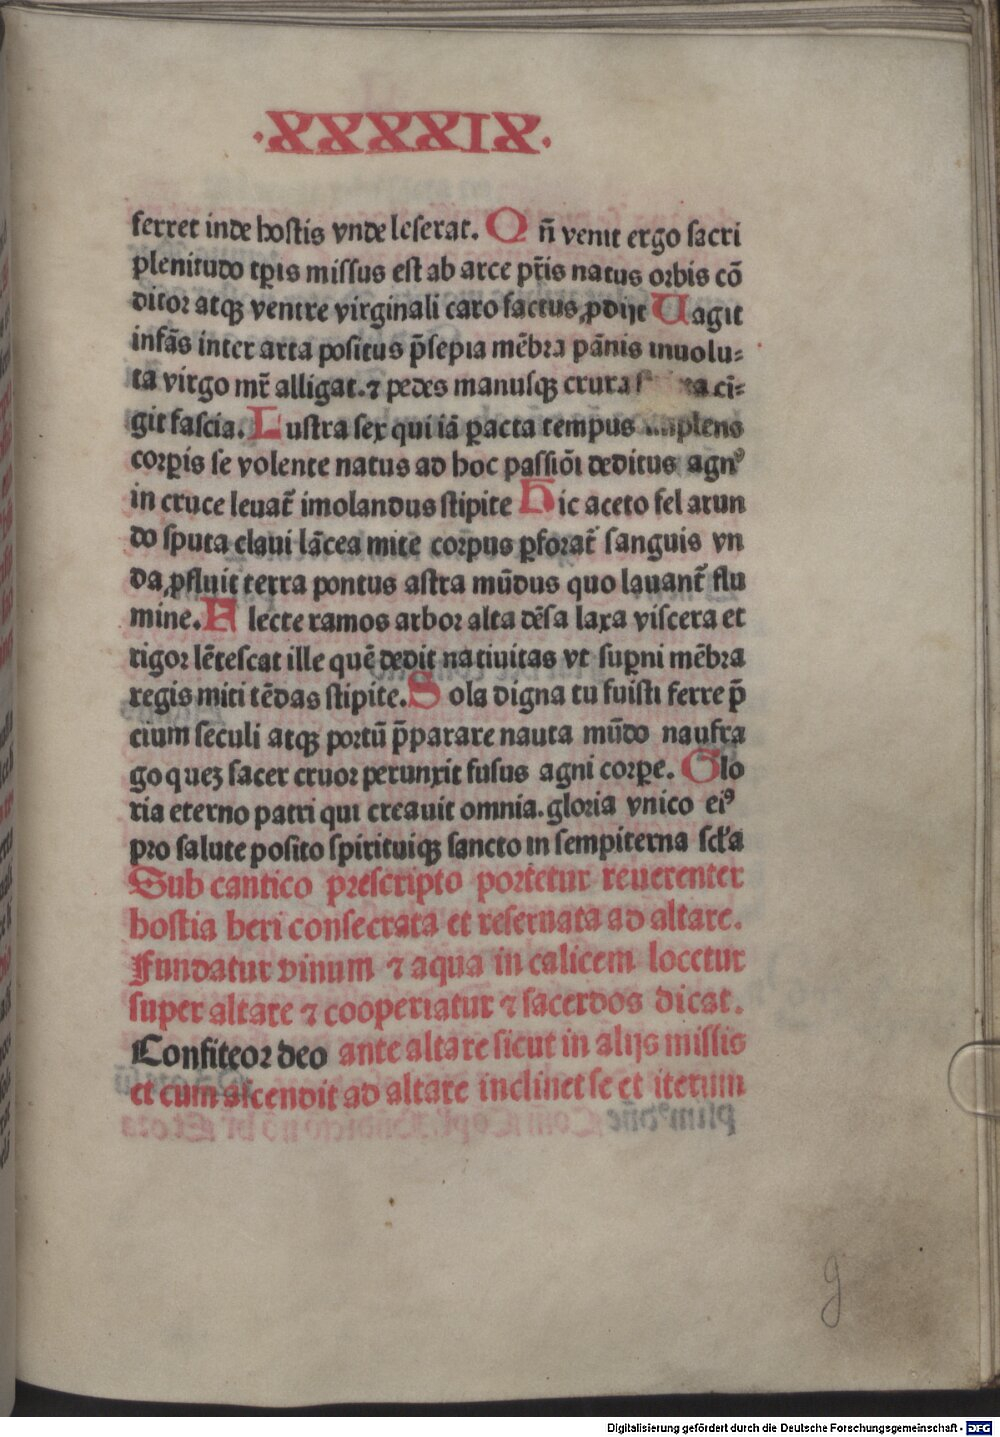 ·XXXXIX·
ferret inde hostis vnde leserat. Qn̄ venit ergo sacri
plenitudo tp̄is missus est ab arce pr̄is natus orbis cō
ditor atqꝫ ventre virginali caro factus ꝓdijt Uagit
infās inter arta positus p̄sepia mēbra pānis inuolu⸗
ta virgo mr̄ alligat. ⁊ pedes manusqꝫ crura a cī⸗
git fascia. Lustra sex qui iā ꝑacta tempus implens
corꝑis se volente natus ad hoc passiōi deditus agnꝰ
in cruce leuat̄ imolandus stipite Hic aceto fel arun
do sputa claui lācea mite corpus ꝑforat̄ sanguis vn
da ꝓfluit terra pontus astra mūdus quo lauant̄ flu
mine. Flecte ramos arbor alta dēsa laxa viscera et
rigor lētescat ille quē dedit natiuitas vt suꝑni mēbra
regis miti tēdas stipite. Sola digna tu fuisti ferre p̄
cium seculi atqꝫ portū p̄parare nauta mūdo naufra
go quez sacer cruor perunxit fusus agni corꝑe. Glo
ria eterno patri qui creauit omnia. gloria vnico eiꝰ
pro salute posito spirituiqꝫ sancto in sempiterna scl̄a
Sub cantico prescripto portetur reuerenter
hostia heri consecrata et reseruata ad altare.
Fundatur vinum ⁊ aqua in calicem locetur
super altare ⁊ cooperiatur ⁊ sacerdos dicat.
Confiteor deo ante altare sicut in alijs missis
et cum ascendit ad altare inclinet se et iterum
g
Digitalisierung gefördert durch die Deutsche Forschungsgemeinschaft - DFG